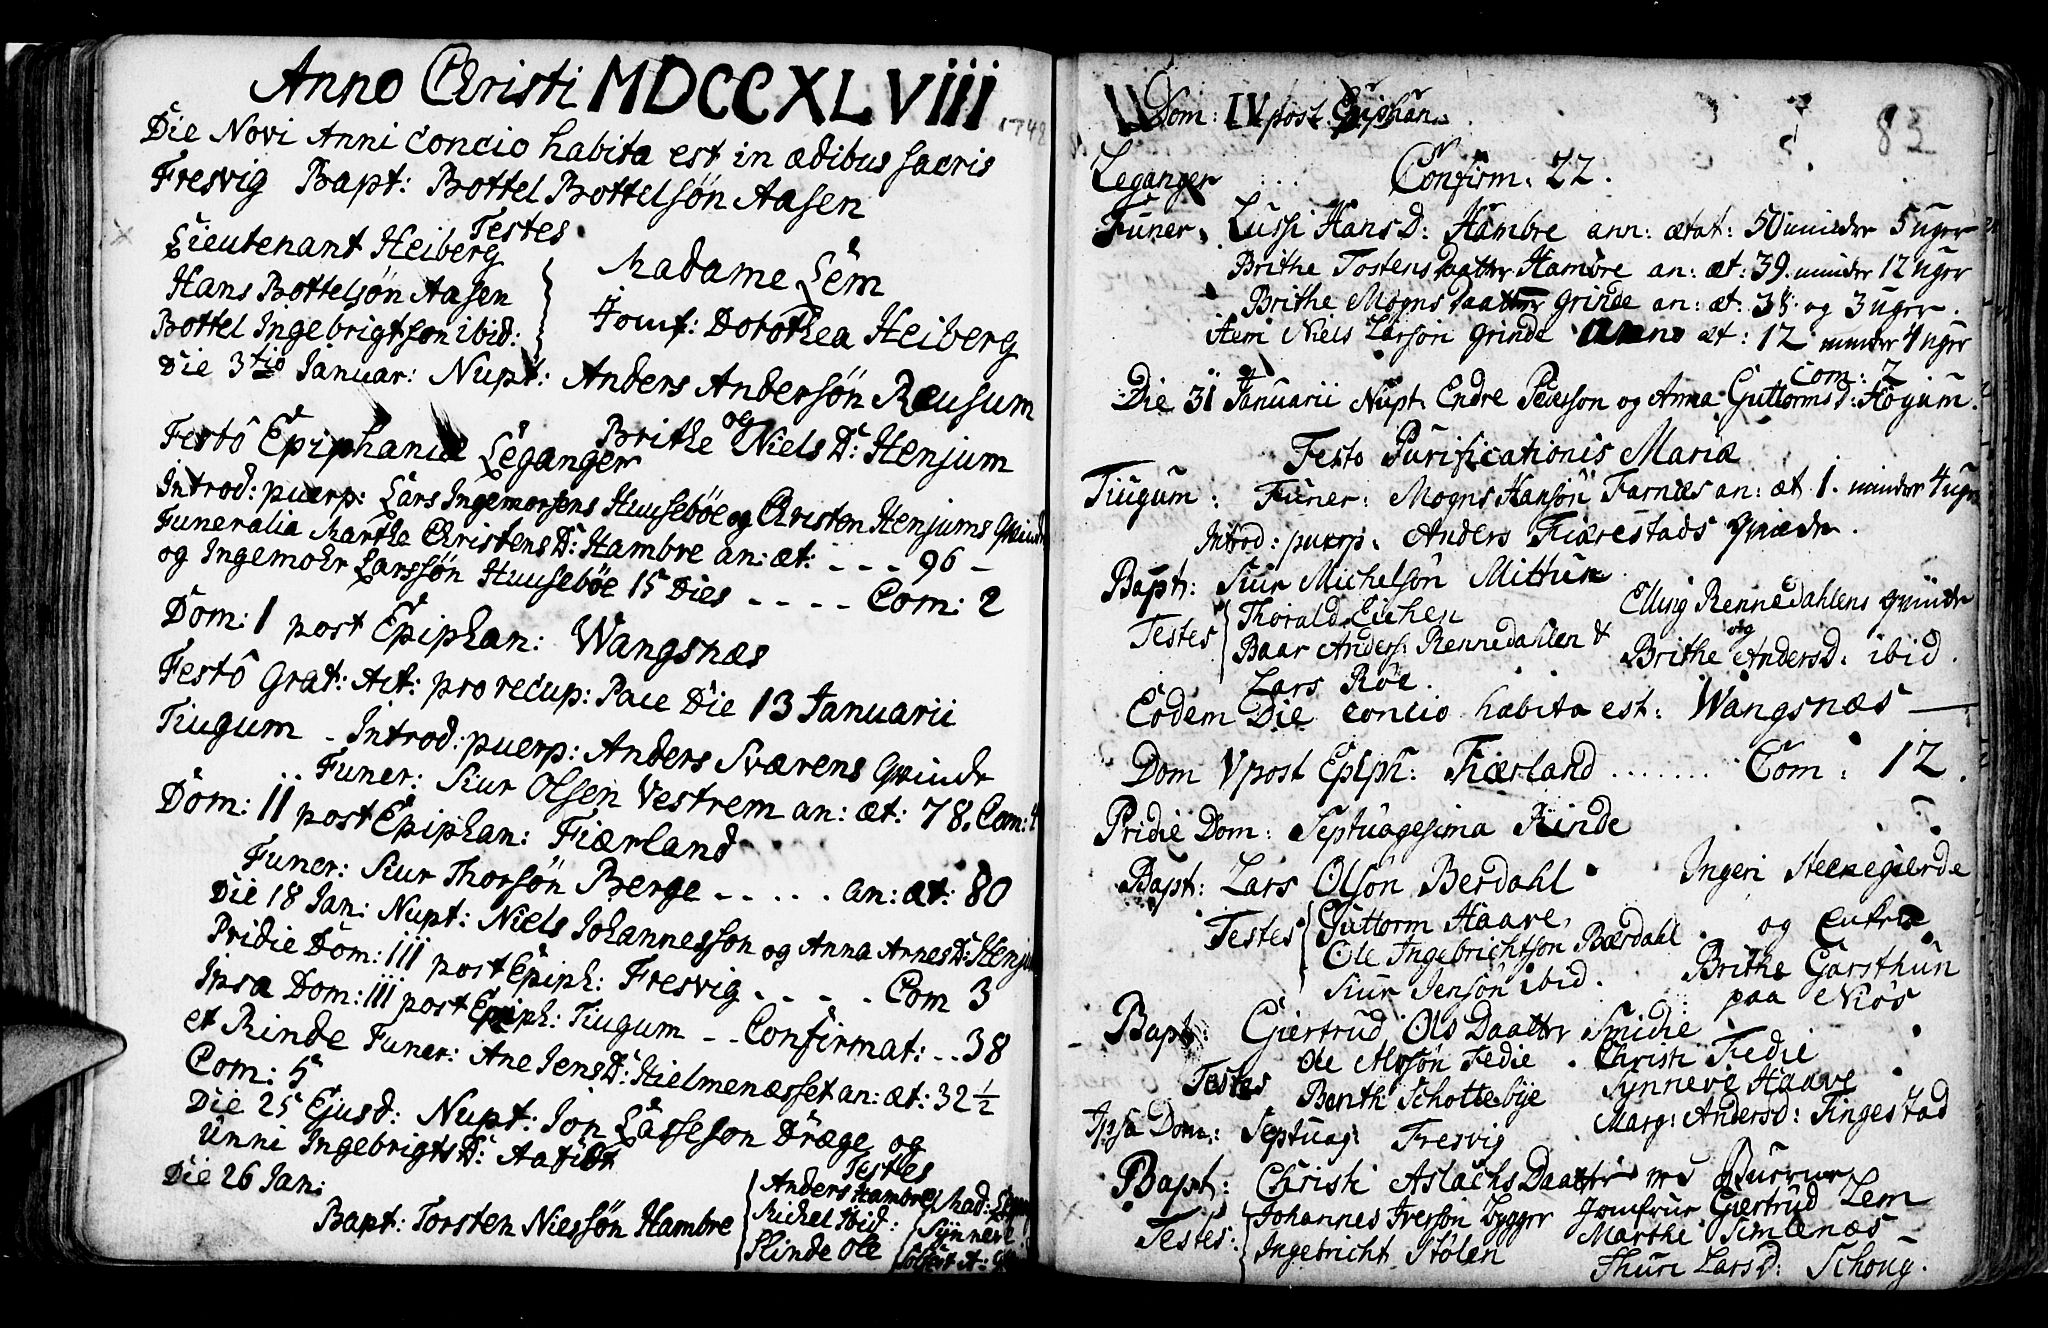 Anno Christi MDCCXLViii
1748
Die Novi Anni Concio habita est in ædibus sacris
Fresvig Bapt: Bottel Bottelsøn Aasen
Testes
Lieutenant Heiberg
Madame Lem
Hans Bottelsøn Aasen
Jomf: Dorothea Heiberg
Bottel Ingebrigtson ibid:
Die 3tio Januar: Nupt: Anders Andersøn Reusum
og
Brithe Niels D: Henjum
Festo Epiphaniæ Leganger
Introd: puerp: Lars Ingemorsens Huusebøe og Christen Henjums Qvinde
Funeralia Marthe Christens D: Hambre an: æt: - - - 96 -
og Ingemohr Larssøn Huusebøe 15 Dies - - - - Com: 2
Dom: 1 post Epiphan: Wangsnæs
Festô Grat: Act: pro recup: Pace Die 13 Januarii
Tiugum - Introd: puerp: Anders Sværens Qvinde
Funer: Siur Olsen Vestrem an: æt: 78. Com: 4
Dom: ii post Epiphan: Fiærland
Funer: Siur Thorsøn Berge - - - - - an: æt: 80
Die 18 Jan: Nupt: Niels Johannesson og Anna Arnes D: Henjum
Pridie Dom: iii post Epiph: Fresvig - - - - Com 3
Ipsa Dom: iii post Epiph: Tiugum - - Confirmat: - - 38
et Rinde Funer: Ane Jens D: Hielmenæsset an: æt: 32 ½
Com: 5
Die 25 Ejusd: Nupt: Jon Lasseson Dræge og
Unni Ingebrigts D: Aatiøt
Die 26 Jan:
Testes
Bapt: Torsten Nielssøn Hambre
Anders Hambre
Michel ibid:
Slinde Ole
Mad:
Synneve
83
Dom: IV post Epiphan.
Leganger Confirm: 22.
Funer. Lussi Hans D: Hambre ann: ætat: 50 minder 5 uger
Brithe Tostens Daatter Hambre an: æt: 39. minder 12 uger
Brithe Mogns Daatter Grinde an: æt: 38 og 3 uger.
Item Niels Larson Grinde Anno æt: 12 minder 4 uger
Com: 2
Die 31 Januarii Nupt. Endre Peterson og Anna Guttorms d: Høyum.
Festo Purificationis Mariæ
Tiugum: Funer: Mogns Hansøn Farnæs an: æt 1. minder 4 uger
Introd: puerp. Anders Fiærestads Qvinde.
Bapt: Siur Michelsøn Mittun
Testes Thorald Eichen
Elling Rennedahlens Qvinde
Baar Anders: Rennedahlen &
og
Brithe Andersd: ibid.
Lars Røe.
Eodem Die concio habita est: Wangsnæs
Dom V post Epiph: Fiærland ....... Com: 12.
Pridie Dom: Septuagesima Rinde
Bapt: Lars Olsøn Berdahl
Ingeri Steenegierde
Testes Guttorm Haave,
og Enken
Ole Ingebrichtson Bærdahl
Brithe Garsthun
Siur Jensøn ibid.
paa Niøs
Bapt: Giertrud Ols Daatter Smidie
Ole Tiedie. Christi Tiedie
Testes Benth: Schottebye
Synneve Haave
Marg: Andersd: Tingestad
Ipsa Dom: Septuag: Fresvig
Bapt: Christi Aslachs Daatter
Testes: Johannes Iverson
Jomfrue Giertrud Lem
Ingebricht Stølen
Marthe Simlenæs
Thuri Larsd: Schoug.